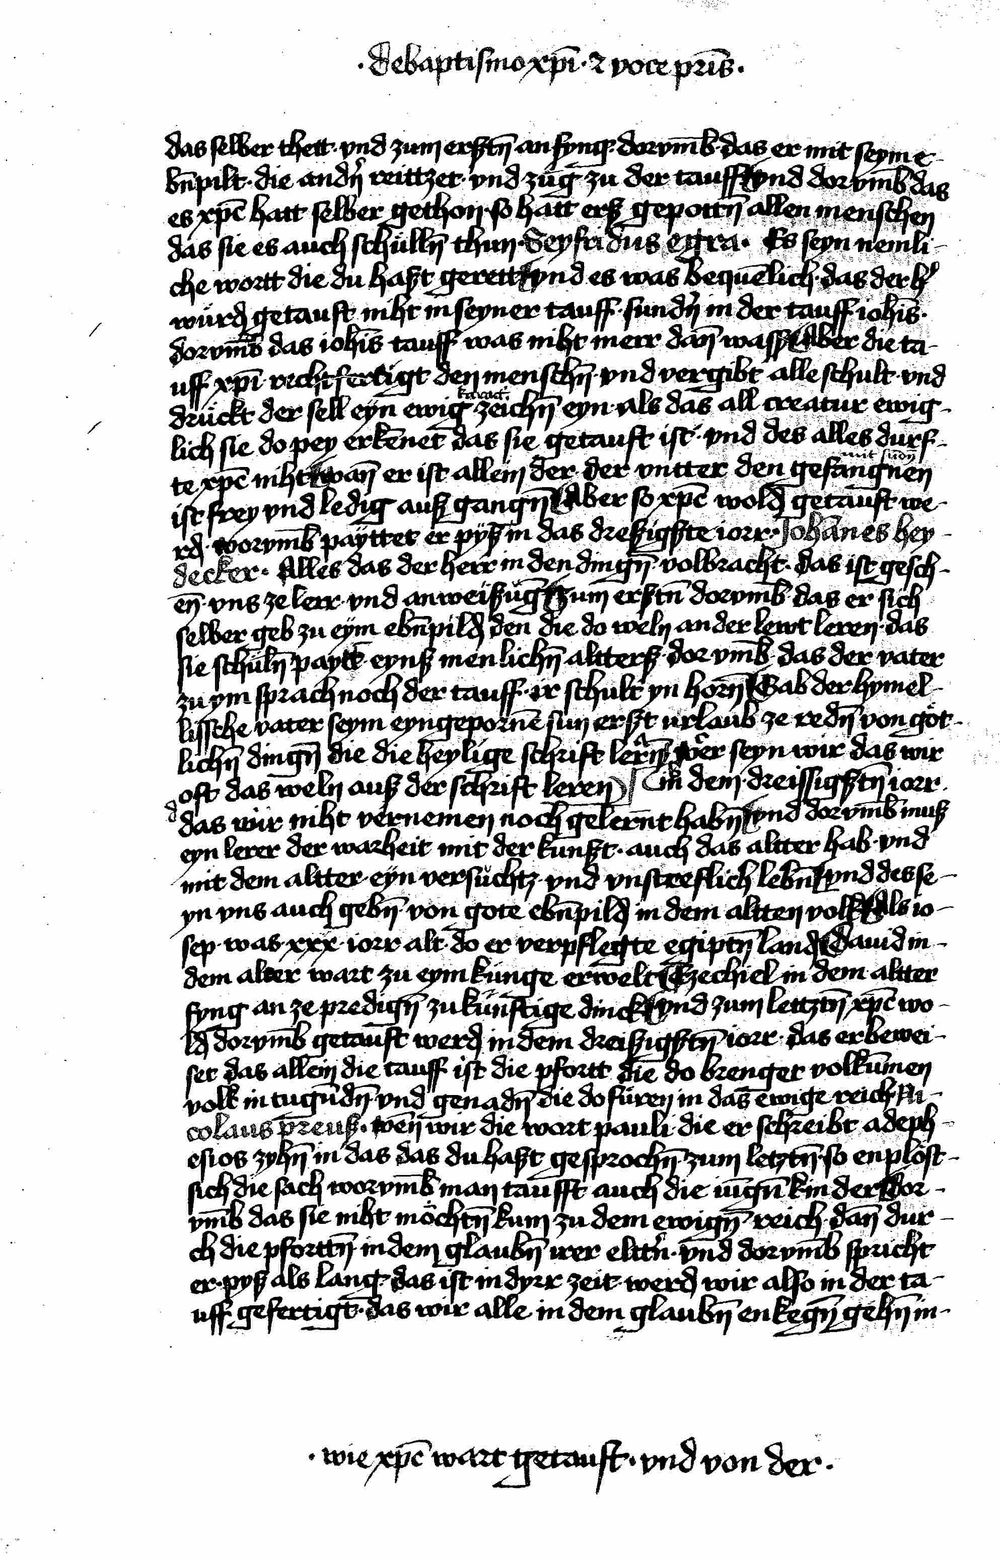 ·de baptismo xpī· ⁊ voce pr̄is·
das selber thett· vnd zum ersztn̄ anfyng· dorvmb̄· das er mit seym e-
bn̄pilt· die andn̄ reittzet· vnd zug zu der tauff vnd dorvmb̄ das
es xpc̄ hatt selber gethon· so hatt ersz gepottn̄ allen menschen
das sie es auch schülln̄ thun· Seyfridus egra· Es seyn nemli-
che wortt die du haszt gerett vnd es was bequēlich· das der h̄r
würd getauft niht in seyner tauff· sundn̄ in der tauff ioh̄is·
dorvmb̄ das ioh̄is tauff was niht merr dan̄ wassz Aber die ta-
uff xpī· rechtfertigt den menschn̄· vnd vergibt alle schult· vnd
drückt der sell eyn ewig zeichn̄ eyn· als das all creatur ewig-
lich sie do pey erkēnet das sie getauft ist· vnd des alles durf-
mit sudn̄
te xpc̄ niht wan̄ er ist allein der· der vntter den gefangnen
ist frey vnd ledig ausz gangn̄ Aber so xpc̄ wold getauft we-
rd· worvmb̄ payttet er pysz in das dreszigszte iorr· Johānes hey-
decker· Alles das der herr in den dingn̄ volbracht· das ist gesch-
en̄· vns ze lerr· vnd anweiszūg zum ersztn̄ dorvmb̄· das er sich
selber geb zu eym ebn̄pild den die do weln an der lewt leren· das
sie schüln̄ paytt̄ eynsz menlichn̄ alttersz· dorvmb̄· das der vater
zu ym sprach noch der tauff· ir schult yn horn̄ Gab der hymel-
lissche vater seym eyngepornē sun erszt urlaub ze redn̄ von göt-
lichn̄ dingn̄ die die heylige schrift lern̄ wer seyn wir das wir
oft das weln ausz der schrift leren in dem dreissigsztn̄ iorr
das wir niht vernemen noch gelernt habn̄ vnd dorvmb̄ musz
eyn lerer der warheit mit der kunszt· auch das altter hab· vnd
mit dem altter· eyn versuchtz· vnd vnstreflich lebn̄ vnd des se-
yn vns auch gebn̄· von gote ebn̄pild in dem altten volk Als io-
sep· was xxx· iorr alt· do er verpflegte egiptn̄ land Dauid in-
dem alter wart zu eym künge erwelt Ezechiel in dem altter
fyng an ze predign̄ zukünftige dinck vnd zum letztn̄ xpc̄ wo-
ld dorvmb̄ getauft werd in dem dreiszigsztn̄ iorr· das er bewei-
set das allein die tauff ist die pfortt die do brenget volkūmen
volk in tugūdn̄· vnd genadn̄ die do füren in das ewige reich Ni-
colaus preusz· wen̄ wir die wort pauli die er schreibt ad eph-
esios zyhn̄ in das das du haszt gesprochn̄ zum letztn̄· so enplöst-
sich die sach worvmb̄ man taufft auch die iūgn̄ kinder dor-
vmb̄ das sie niht möchtn̄ kum zu dem ewign̄ reich· dan̄ dur-
ch die pforttn̄ in dem glaubn̄ irer elttn̄· vnd dorvmb̄ spricht
er· pysz als lang· das ist in dyrr zeit· werd wir also in der ta-
uff· gefertigt· das wir alle in dem glaubn̄ enkegn̄ gehn̄ in-
·wie xpc̄ wart getauft· vnd von der·